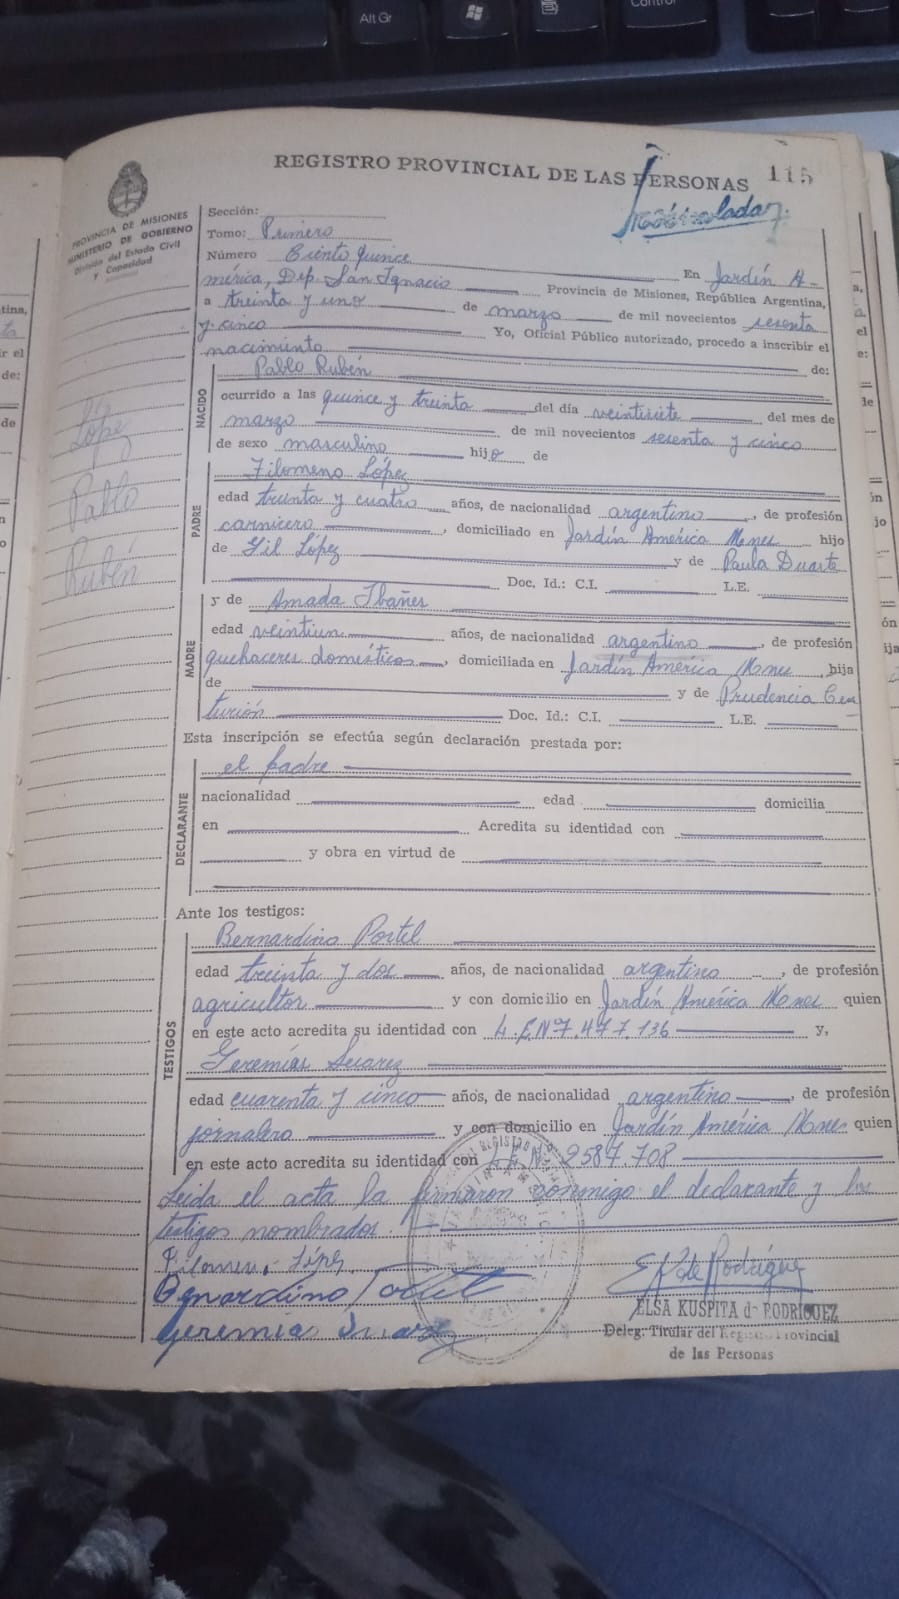 Alt Gr
Control
REGISTRO PROVINCIAL DE LAS PERSONAS
115
PROVINCIA DE MISIONES
MINISTERIO DE GOBIERNO
División del Estado Civil
y Capacidad
Sección:
Tomo: Primero
Número Ciento quince En Jardín A-
mérica, Dep. San Ignacio Provincia de Misiones, República Argentina,
a treinta y uno de marzo de mil novecientos sesenta
y cinco Yo, Oficial Público autorizado, procedo a inscribir el
nacimiento de:
NACIDO
Pablo Rubén
ocurrido a las quince y treinta del día veintisiete del mes de
marzo de mil novecientos sesenta y cinco
de sexo masculino hijo de
López
Pablo
Rubén
PADRE
Filomeno López
edad treinta y cuatro años, de nacionalidad argentino, de profesión
carnicero, domiciliado en Jardín América Mnes hijo
de Gil López y de Paula Duarte
Doc. Id.: C.I. L.E.
MADRE
y de Amada Ibañes
edad veintiun años, de nacionalidad argentino, de profesión
quehaceres domésticos, domiciliada en Jardín América Mnes hija
de y de Prudencia Cen
turión Doc. Id.: C.I. L.E.
Esta inscripción se efectúa según declaración prestada por:
DECLARANTE
el padre
nacionalidad edad domicilia
en Acredita su identidad con
y obra en virtud de
Ante los testigos:
TESTIGOS
Bernardino Portel
edad treinta y dos años, de nacionalidad argentino, de profesión
agricultor y con domicilio en Jardín América Mnes quien
en este acto acredita su identidad con L.E.Nº7.477.136 y,
Geremías Suarez
edad cuarenta y cinco años, de nacionalidad argentino, de profesión
jornalero y con domicilio en Jardín América Mnes quien
en este acto acredita su identidad con L.E.Nº 2587.708
Leida el acta la firmaron conmigo el declarante y los
testigos nombrados.
López
Bernardino
Geremias Suarez
E K de Rodríguez
ELSA KUSPITA de RODRÍGUEZ
Deleg. Titular del Registro Provincial
de las Personas